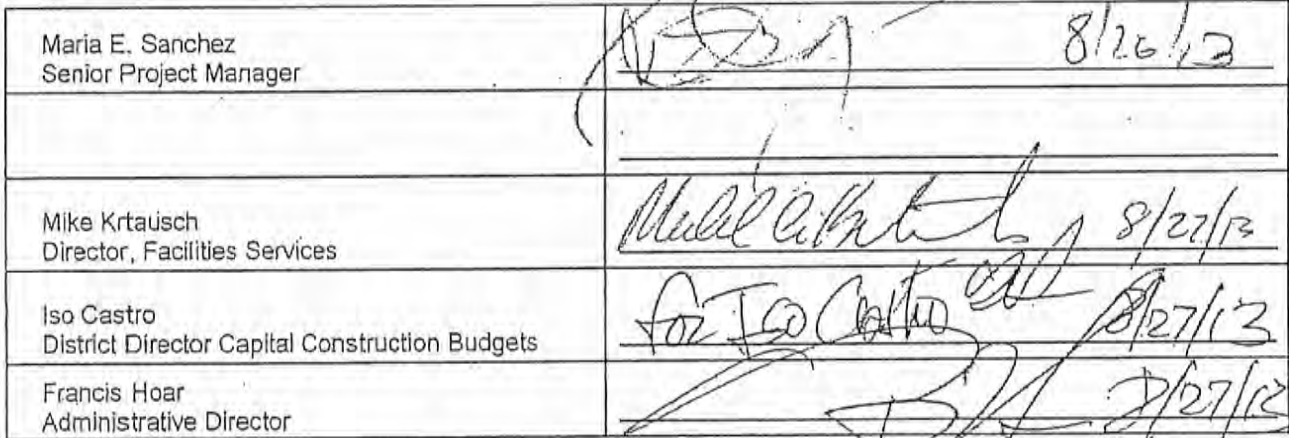 Maria E. Sanchez
Senior Project Manager
8/26/13
Mike Krtausch
Director, Facilities Services
8/27/13
Iso Castro
District Director Capital Construction Budgets
for Iso Castro 8/27/13
Francis Hoar
Administrative Director
8/27/13